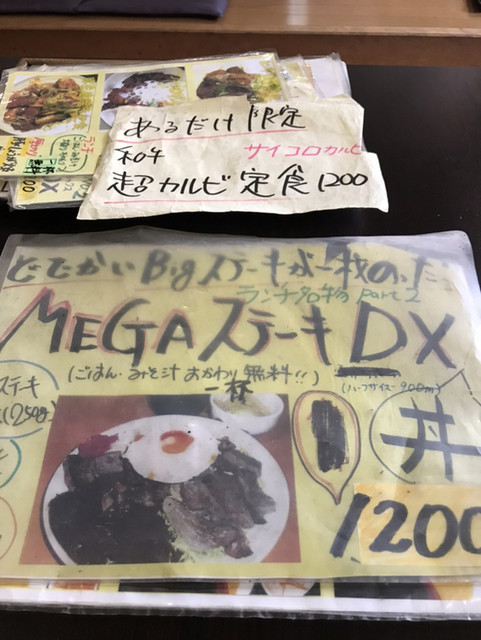 あるだけ限定
和牛 サイコロカルビ
超カルビ定食1200
どでかいBigステーキが一枚のっだ
ランチ名物 Part2
MEGAステーキDX
(ごはん・みそ汁おかわり無料!!)
一杯
(ハーフサイズ 900円)
ステーキ
250g
丼
1200